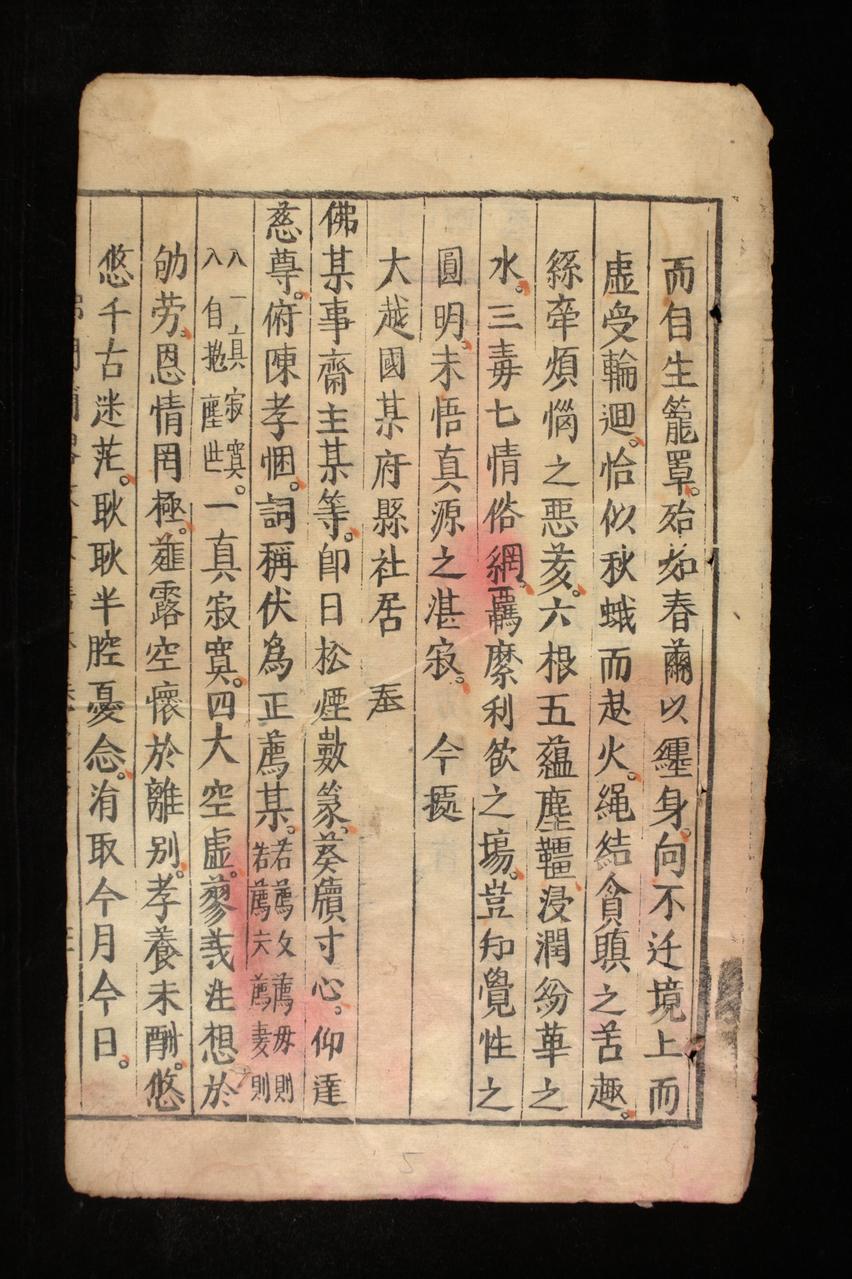 而自生籠罩。殆如春繭以纏身。向不迁境上而
虛受輪迴。恰似秋蛾而赴火。繩結貪瞋之苦趣。
綵牽煩惱之惡荄。六根五蘊塵韁浸潤紛華之
水。三毒七情俗網。羈縻利欲之場。豈知覺性之
圓明。未悟真源之湛寂。 今據
大越國某府縣社居 奉
佛某事齋主某等。卽日松煙數篆。葵牘寸心。仰達
慈尊。俯陳孝悃。詞稱伏為正薦某。若薦父薦母則
若薦夫薦妻則
入一真寂寞。
入自拋塵世
一真寂寞。四大空虛。蓼義注想於
劬劳。恩情罔極。薤露空懷於離别。孝養未酬。悠
悠千古迷茫。耿耿半腔憂念。洧取今月今日。